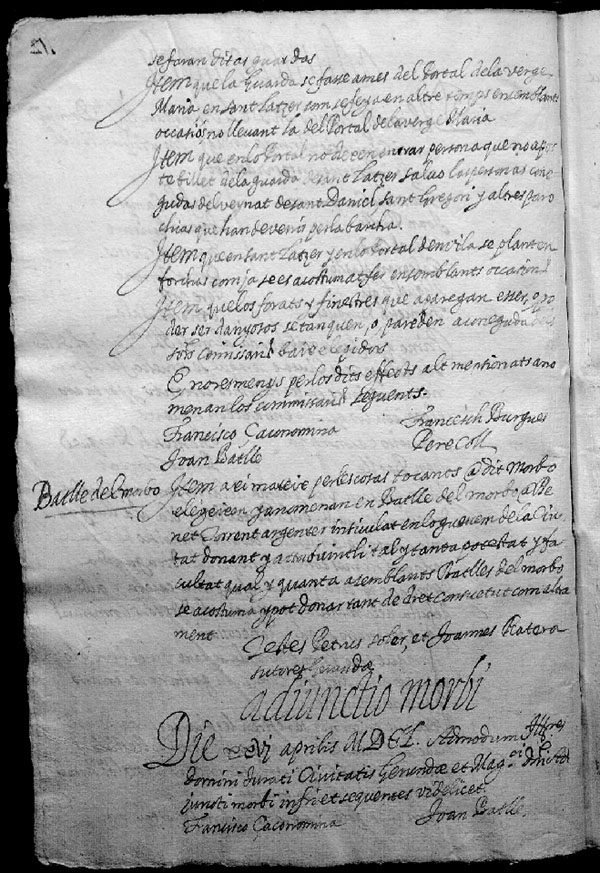 se faran ditas guardas
Item que la Guarda se fasse ames del Portal de la verge
Maria en sant Latzer com se feya en altre temps en semblants
ocasions no llevant la del Portal de la verge Maria
Item que en lo Portal no dexen entrar persona que no apor
te billet de la guarda de sant Latzer salvo las personas cone
gudas del veynat de sant Daniel sant Gregori y altres paro
chias que han de venir per la barcha.
Item que en sant Latzer y en lo Portal den vila se planten
forcas com ja se es acostumat fer en semblants occasions
Item que los forats y finestres que aparegan esser, o po
der ser danyosos se tanquen, o pareden a coneguda dels
sots comissaris baix elegidors
E no resmenys per los dits effects alt mentionats ano
menan los commissaris seguents.
Francisco Caconomina Francesch Burgues
Joan Batlle Pere Coll
Batlle del morbo
Item axi mateix per les cosas tocants a dit Morbo
elegeixen y anomenan en Batlle del morbo a Be
net Torrent argenter intitulat en lo quern de la Ciu
tat donant y attribuintli tal y tanta potestat y fa
cultat qual y quanta a semblants Batlles del morbo
se acostuma y pot donar tant de dret consuetut com altra
ment
Testes Petrus soler, et Joannes Ratera
sutores Gerundæ
adiunctio morbi
Die xxvi aprilis MDCL. Admodum Illres
domini Jurati Civitatis Gerundæ et Magci dni Ad
juncti morbi infri et sequentes videlicet
Fancisco Caconomina Joan Batlle